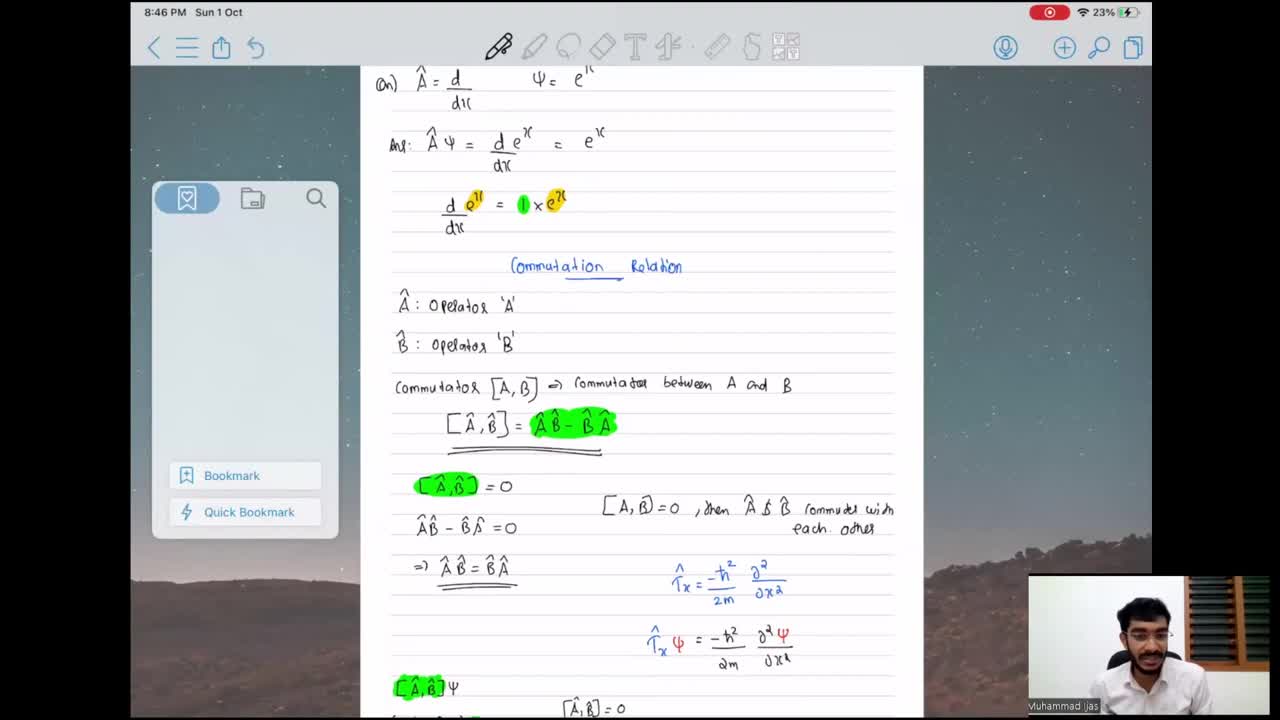 8:46 PM Sun 1 Oct
23%
Qn) Â = d/dx ψ = e^x
Ans: Âψ = d/dx e^x = e^x
d/dx e^x = 1 × e^x
Commutation Relation
Â : Operator 'A'
B̂ : Operator 'B'
Commutator [A, B] ⇒ Commutator between A and B
[Â, B̂] = ÂB̂ - B̂Â
[Â, B̂] = 0
[A, B] = 0, then Â & B̂ commutes with
each other
ÂB̂ - B̂Â = 0
⇒ ÂB̂ = B̂Â
T̂x = -ħ²/2m ∂²/∂x²
T̂x ψ = -ħ²/2m ∂²ψ/∂x²
[Â, B̂]ψ
[Â, B̂] = 0
Bookmark
Quick Bookmark
Muhammad Ijas